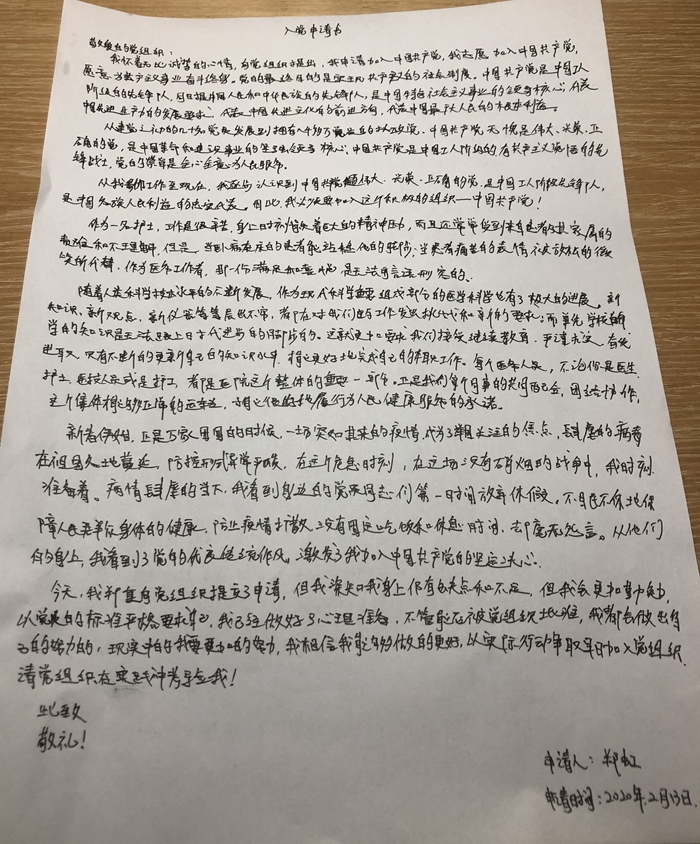 入党申请书
敬爱的党组织：
我怀着无比诚挚的心情，向党组织提出，我申请加入中国共产党，我志愿加入中国共产党，
愿意为共产主义事业奋斗终身。党的最终目的是实现共产主义的社会制度。中国共产党是中国工人
阶级的先锋队，同时是中国人民和中华民族的先锋队，是中国特色社会主义事业的领导核心，代表
中国先进生产力的发展要求，代表中国先进文化的前进方向，代表中国最广大人民的根本利益。
从建党之初的几十名党员发展到拥有八千多万党员的执政党，中国共产党无愧是伟大、光荣、正
确的党，是中国革命和建设事业的坚强领导核心。中国共产党是中国工人阶级的有共产主义觉悟的先
锋战士，党的宗旨是全心全意为人民服务。
从我参加工作至现在，我逐步认识到中国共产党是伟大、光荣、正确的党，是中国工人阶级先锋队，
是中国各族人民利益的忠实代表。因此，我决定要加入这个积极的组织——中国共产党！
作为一名护士，工作是很辛苦，身上时刻背负着巨大的精神压力，而且还常常受到来自患者及其家属的
责难和不理解，但是，当卧病在床的患者能站起他的，当患者痛苦的表情被欣慰的微
笑所代替，作为医务工作者，那一份满足和喜悦是无法用言语形容的。
随着人类科学技术水平的不断发展，作为现代科学重要组成部分的医学科学也有了极大的进展，新
知识，新观点，新仪器等等层出不穷，都在对我们的工作发出挑战和新的要求；而单凭学校所
学的知识是无法跟上日子代进步的脚步的。这就更加要求我们接受继续教育，
进取，只有不断的更新自己的知识水平，将才更好地完成自己的本职工作。每个医务人员，不论你是医生、
护士，医技人员或是护工，都是医院这个整体的重要一部分。正是我们每个同事的共同配合，团结协作，
这个集体才能够正常的运转，才能让他的履行为人民健康服务的承诺。
新春伊始，正是万家团圆的时候，一场突如其来的疫情，成为了举国关注的焦点，肆虐的病毒
在祖国各地蔓延，防控形势异常严峻，在这个危急时刻，在这场没有硝烟的战争中，我时刻
准备着。疫情肆虐的当下，我看到身边的党员同志们第一时间放弃休假。不眠不休地保
障人民群众身体的健康，防止疫情扩散，没有固定吃饭和休息时间，却毫无怨言。从他们
的身上，我看到了党的优良传统作风。激发了我加入中国共产党的坚定决心。
今天，我郑重向党组织提交了申请，但我深知我身上仍有缺点和不足，但我会更加努力，
以党员的标准严格要求自己，我已经做好了心理准备，不管能否被党组织批准，我都会做出自
己的努力的，现实中的我要更加的努力，我相信我能够做的更好，以实际行动争取早日加入党组织，
请党组织在实践中考验我！
此致
敬礼！
申请人：郑虹
申请时间：2020年2月13日